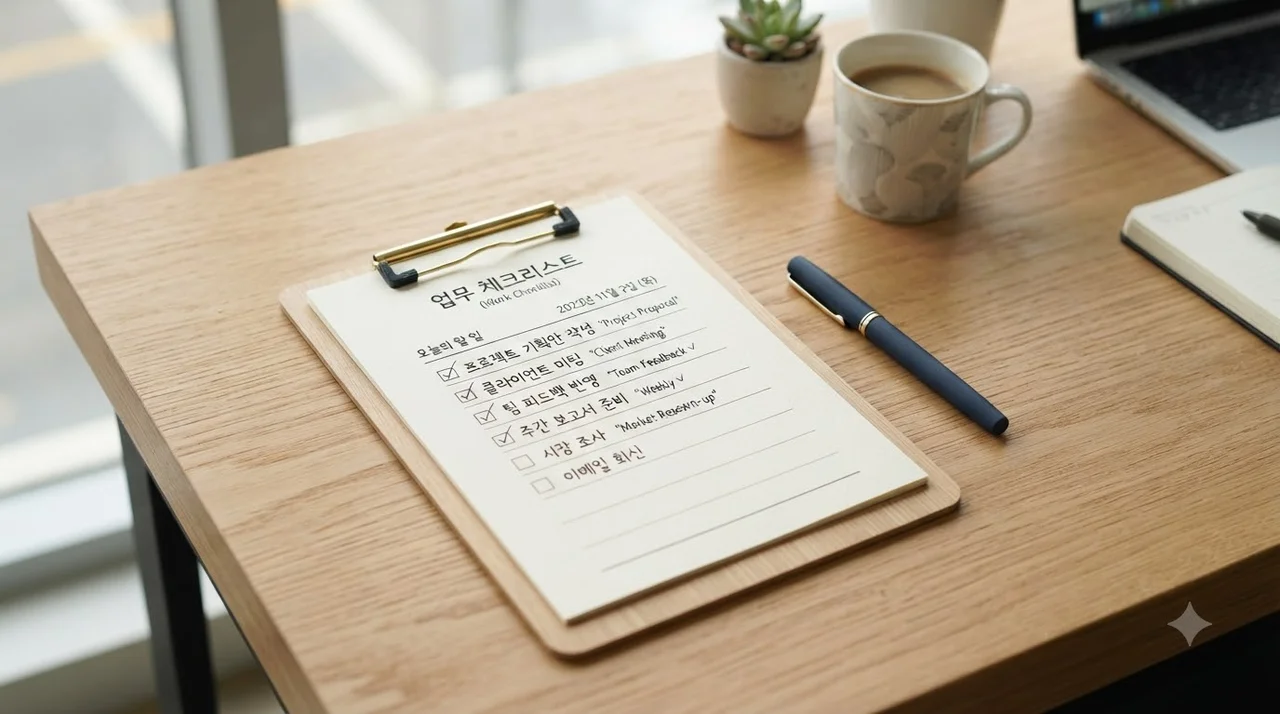 업무 체크리스트
(Work Checklist)
2023년 11월 7일 (목)
오늘의 할 일
프로젝트 기획안 작성 "Project Proposal"
클라이언트 미팅 "Client Meeting"
팀 피드백 반영 "Team Feedback
주간 보고서 준비 "Weekly
시장 조사 "Market
이메일 회신